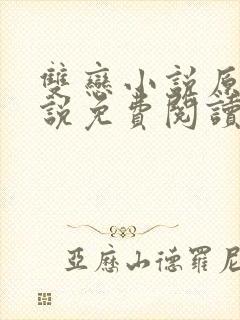 雙戀小說原
說免費閱讀
亞歷山德羅尼